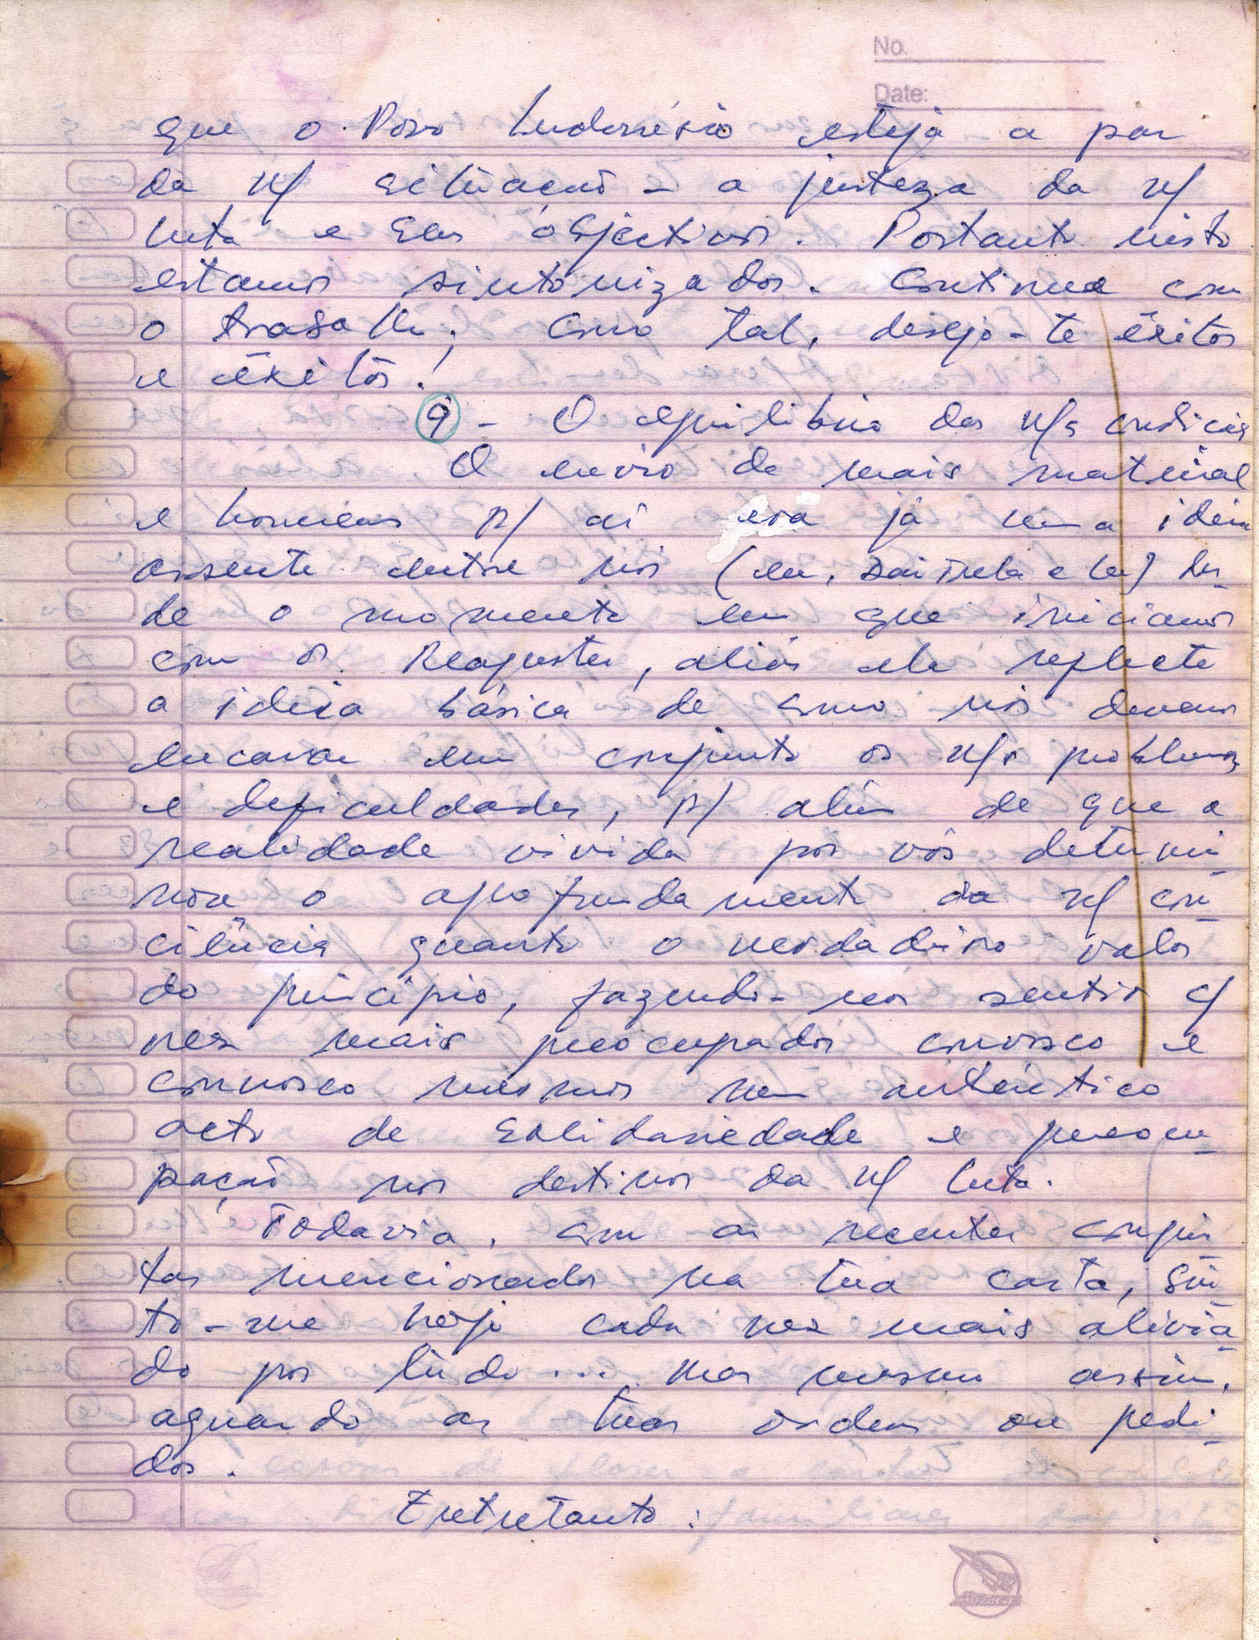 No.
Date:
que o Povo Indonésio esteja a par
da n/ situação - a justeza da n/
luta e seus objectivos. Portanto nisto
estamos sintonizados. Continua com
o trabalho; como tal, desejo-te êxitos
e êxitos!
9 - O equilíbrio das n/s condições
O envio de mais material
e homens p/ aí era já uma ideia
assente entre nós (eu, Saitrela e tu) des-
de o momento em que iniciamos
com os Reajustes, aliás ela reflecte
a ideia básica de como nós devemos
encarar em conjunto os n/s problemas
e deficuldades, p/ além de que a
realidade vivida por vós determi-
nou o aprofundamento da n/ cons-
ciência quanto o verdadeiro valor
do princípio, fazendo-nos sentir c/
vez mais preocupados convosco e
connosco mesmos num autêntico
acto de solidariedade e preocu-
pação nos destinos da n/ luta.
Todavia, com as recentes conquis-
tas mencionadas na tua carta, sin-
to-me hoje cada vez mais alivia-
do por tudo... Mas mesmo assim,
aguardo as tuas ordens ou pedi-
dos.
Entretanto: